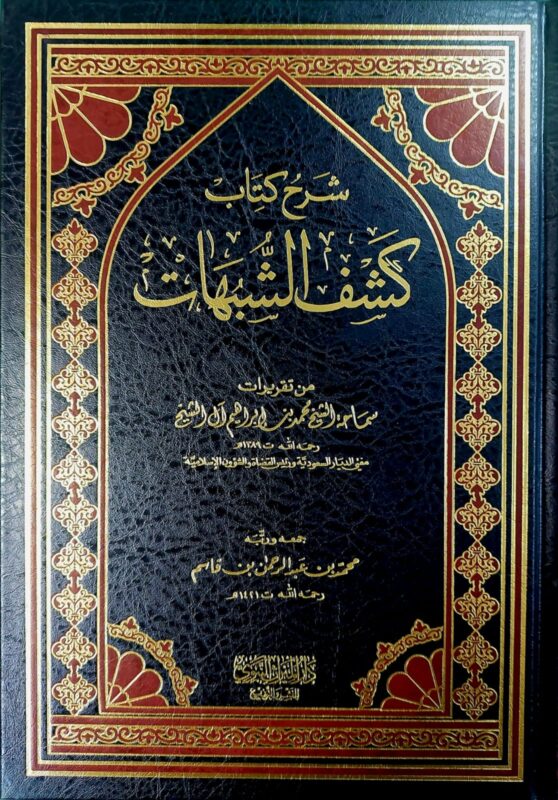 شرح كتاب
كشف الشبهات
من تقريرات
سماحة الشيخ محمد بن إبراهيم آل الشيخ
رحمه الله ت ١٣٨٩هـ
مفتي الديار السعودية ورئيس القضاة والشؤون الإسلامية
جمعه ورتبه
محمد بن عبد الرحمن بن قاسم
رحمه الله ت ١٤٢١هـ
للنشر والتوزيع